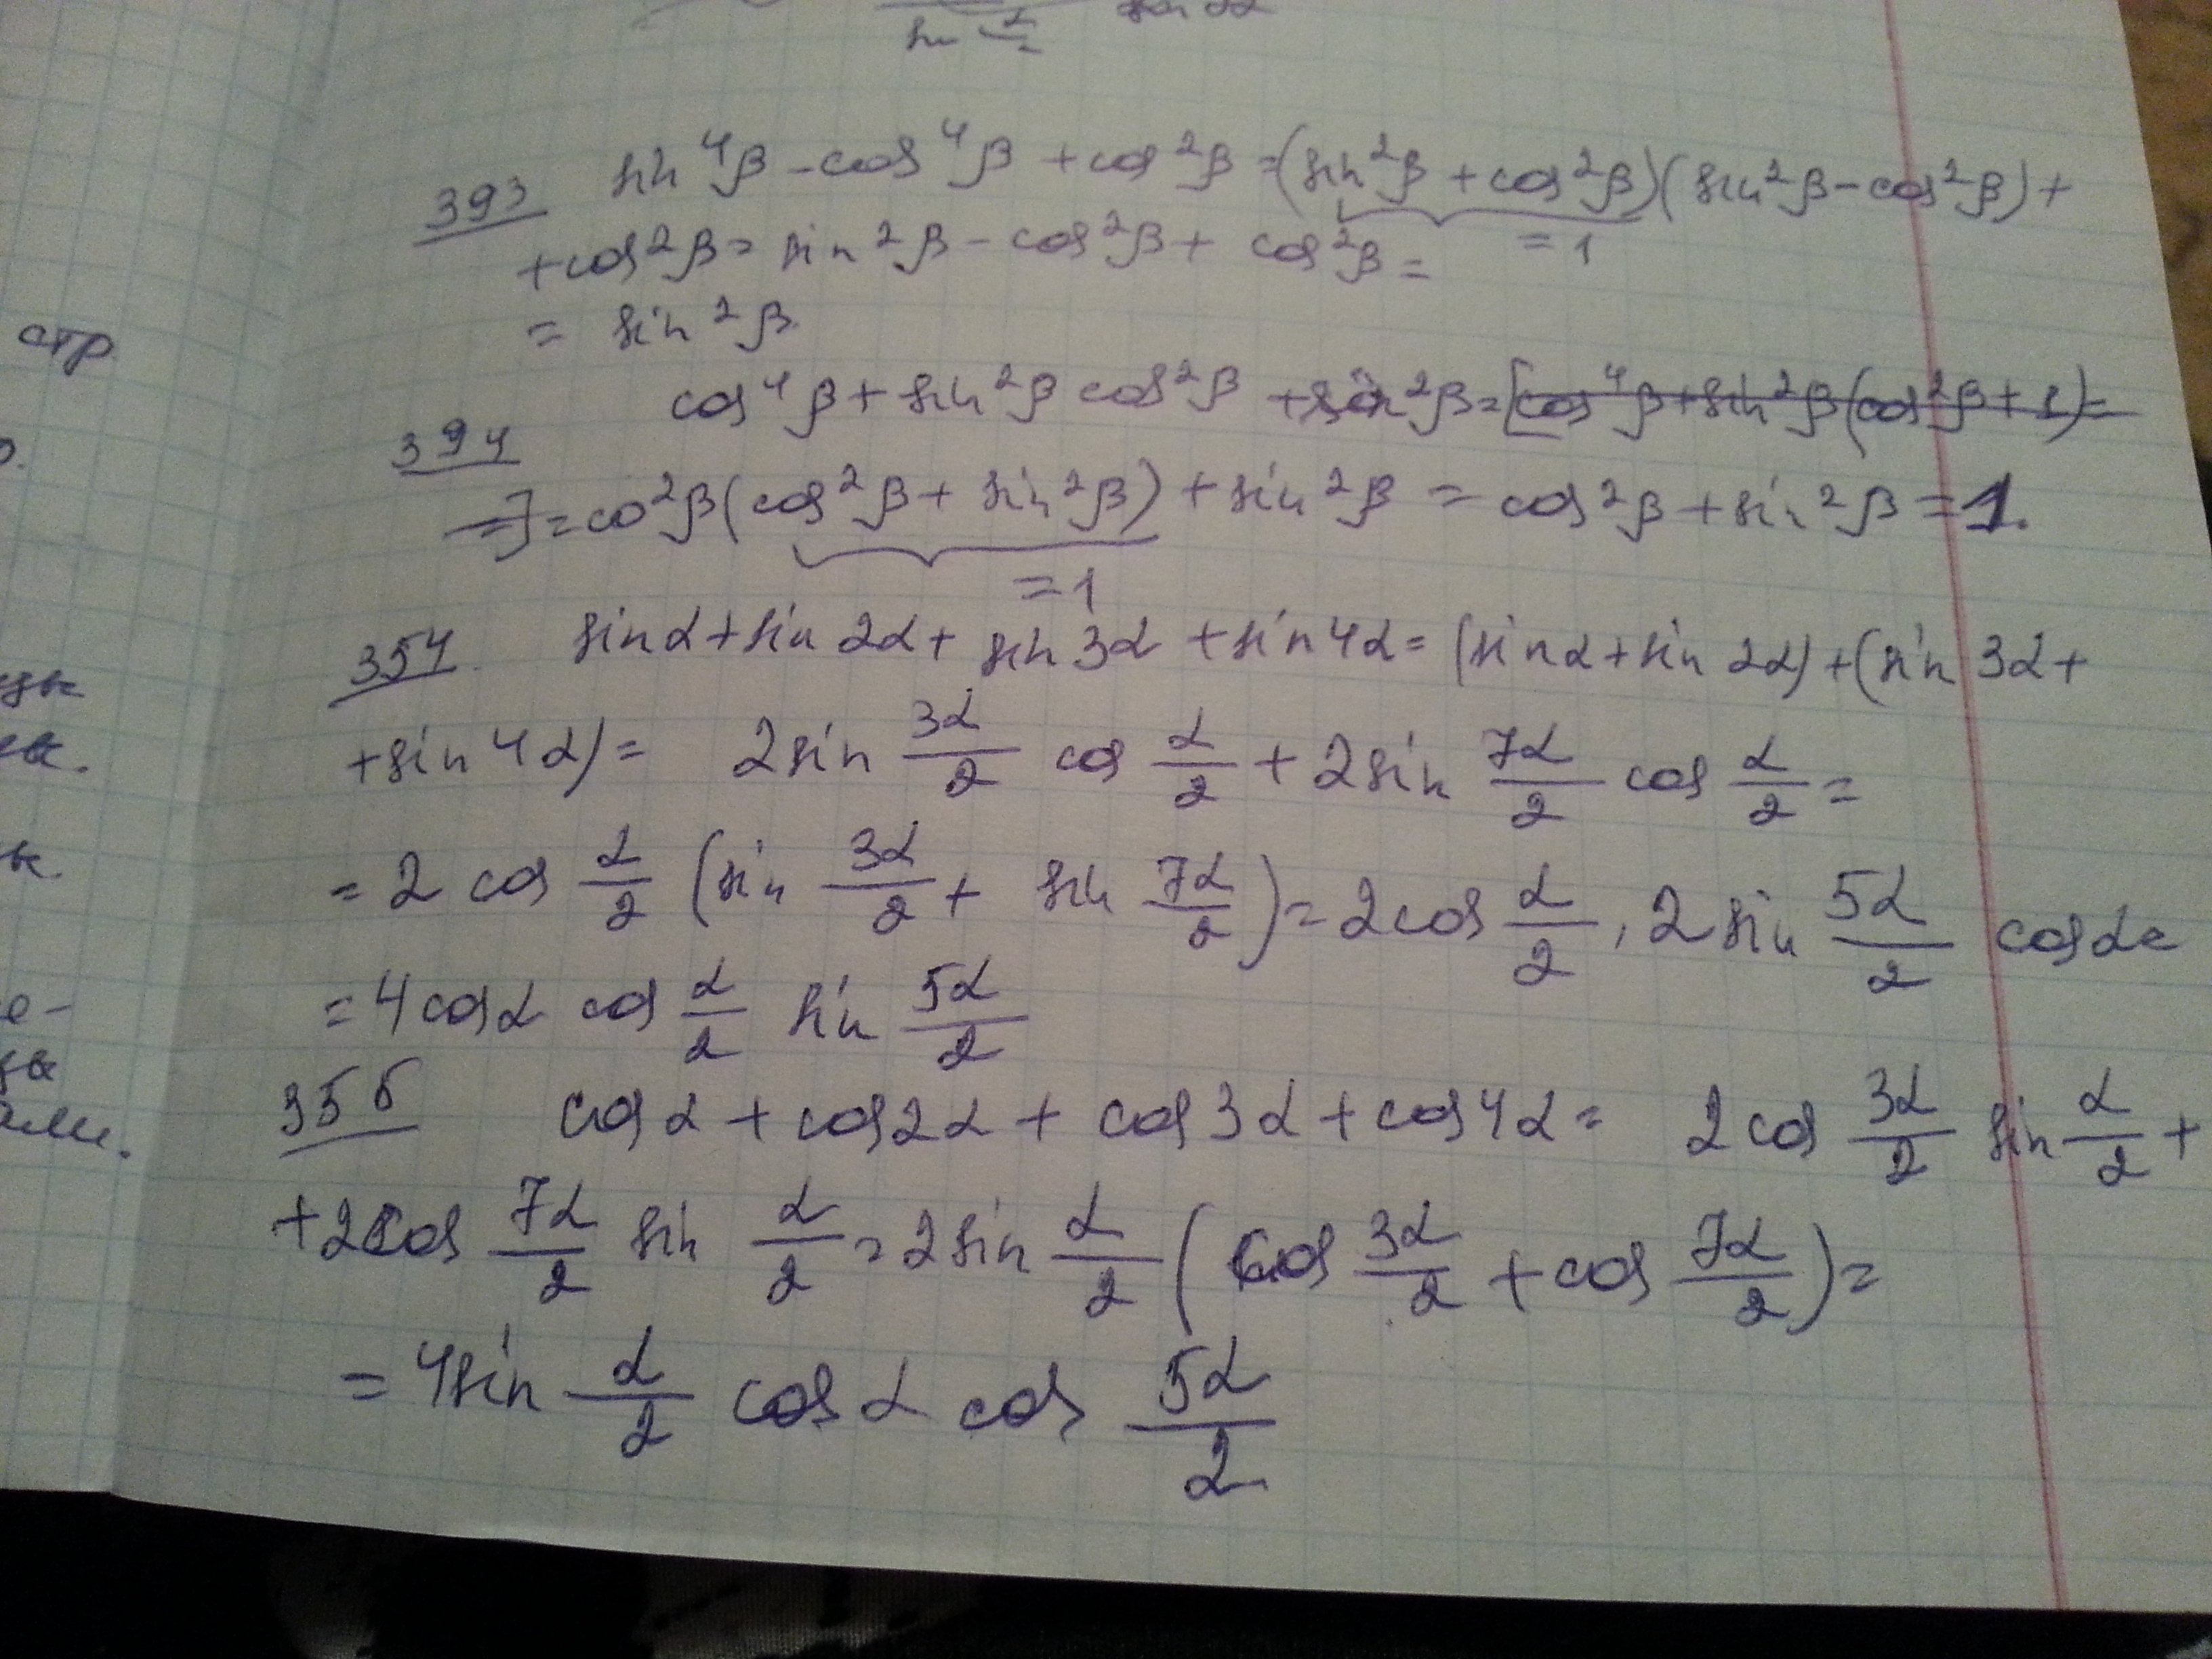 sin α/2
393 sin⁴β - cos⁴β + cos²β = (sin²β + cos²β)(sin²β - cos²β) +
= 1
+ cos²β = sin²β - cos²β + cos²β =
= sin²β
стр.
394 cos⁴β + sin²β cos²β + sin²β = [cos⁴β + sin²β(cos²β + 1) =
=] = co²β(cos²β + sin²β) + sin²β = cos²β + sin²β = 1.
= 1
354. sinα + sin 2α + sin 3α + sin 4α = (sinα + sin 2α) + (sin 3α +
+ sin 4α) = 2 sin 3α/2 cos α/2 + 2 sin 7α/2 cos α/2 =
= 2 cos α/2 (sin 3α/2 + sin 7α/2) = 2 cos α/2 · 2 sin 5α/2 cosα =
= 4 cosα cos α/2 sin 5α/2
356 cosα + cos2α + cos3α + cos4α = 2 cos 3α/2 sin α/2 +
+ 2cos 7α/2 sin α/2 = 2 sin α/2 (cos 3α/2 + cos 7α/2) =
= 4 sin α/2 cosα cos 5α/2